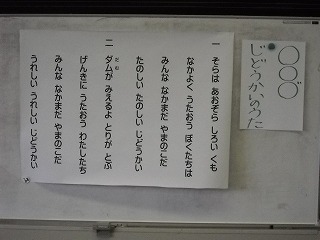 ○○○
じどうかいのうた
一 そらは あおぞら しろい くも
なかよく うたおう ぼくたちは
みんな なかまだ やまのこだ
たのしい たのしい じどうかい
二 ダムが みえるよ とりが とぶ
げんきに うたおう わたしたち
みんな なかまだ やまのこだ
うれしい うれしい じどうかい